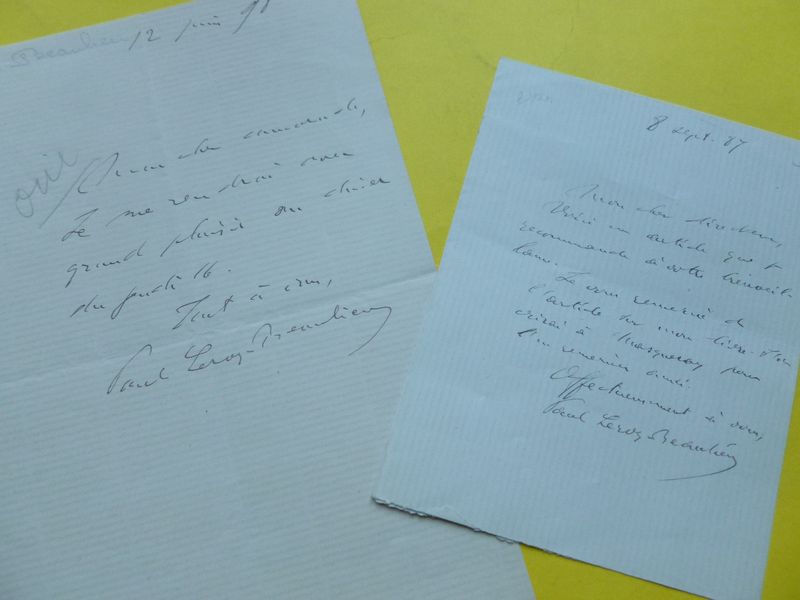 Beaulieu 12 juin
oui
Mon cher camarade,
Je me rendrai avec
grand plaisir au dîner
du jeudi 16.
Tout à vous,
Paul Leroy-Beaulieu
8 sept. 87
Mon cher directeur,
Voici un article que je
recommande à votre bienveil-
lance.
Je vous remercie de
l'article sur mon livre. J'
écrirai à Masqueray pour
l'en remercier aussi.
Affectueusement à vous,
Paul Leroy-Beaulieu